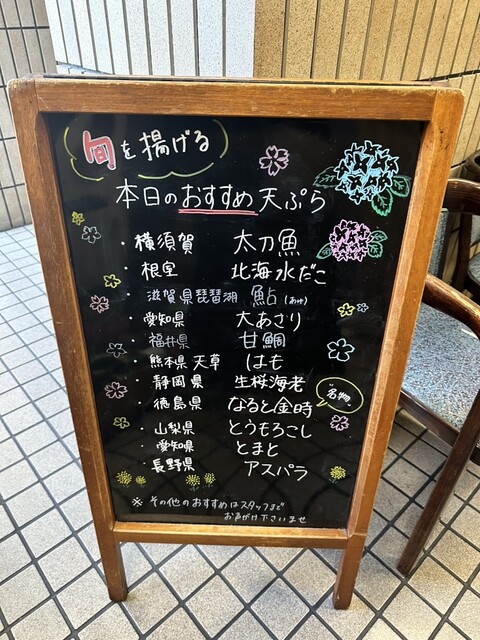 旬を揚げる
本日のおすすめ天ぷら
・横須賀 太刀魚
・根室 北海水だこ
・滋賀県琵琶湖 鮎(あゆ)
・愛知県 大あさり
・福井県 甘鯛
・熊本県 天草 はも
・静岡県 生桜海老
・徳島県 なると金時 名物
・山梨県 とうもろこし
・愛知県 とまと
・長野県 アスパラ
※その他のおすすめはスタッフまで
お声がけ下さいませ